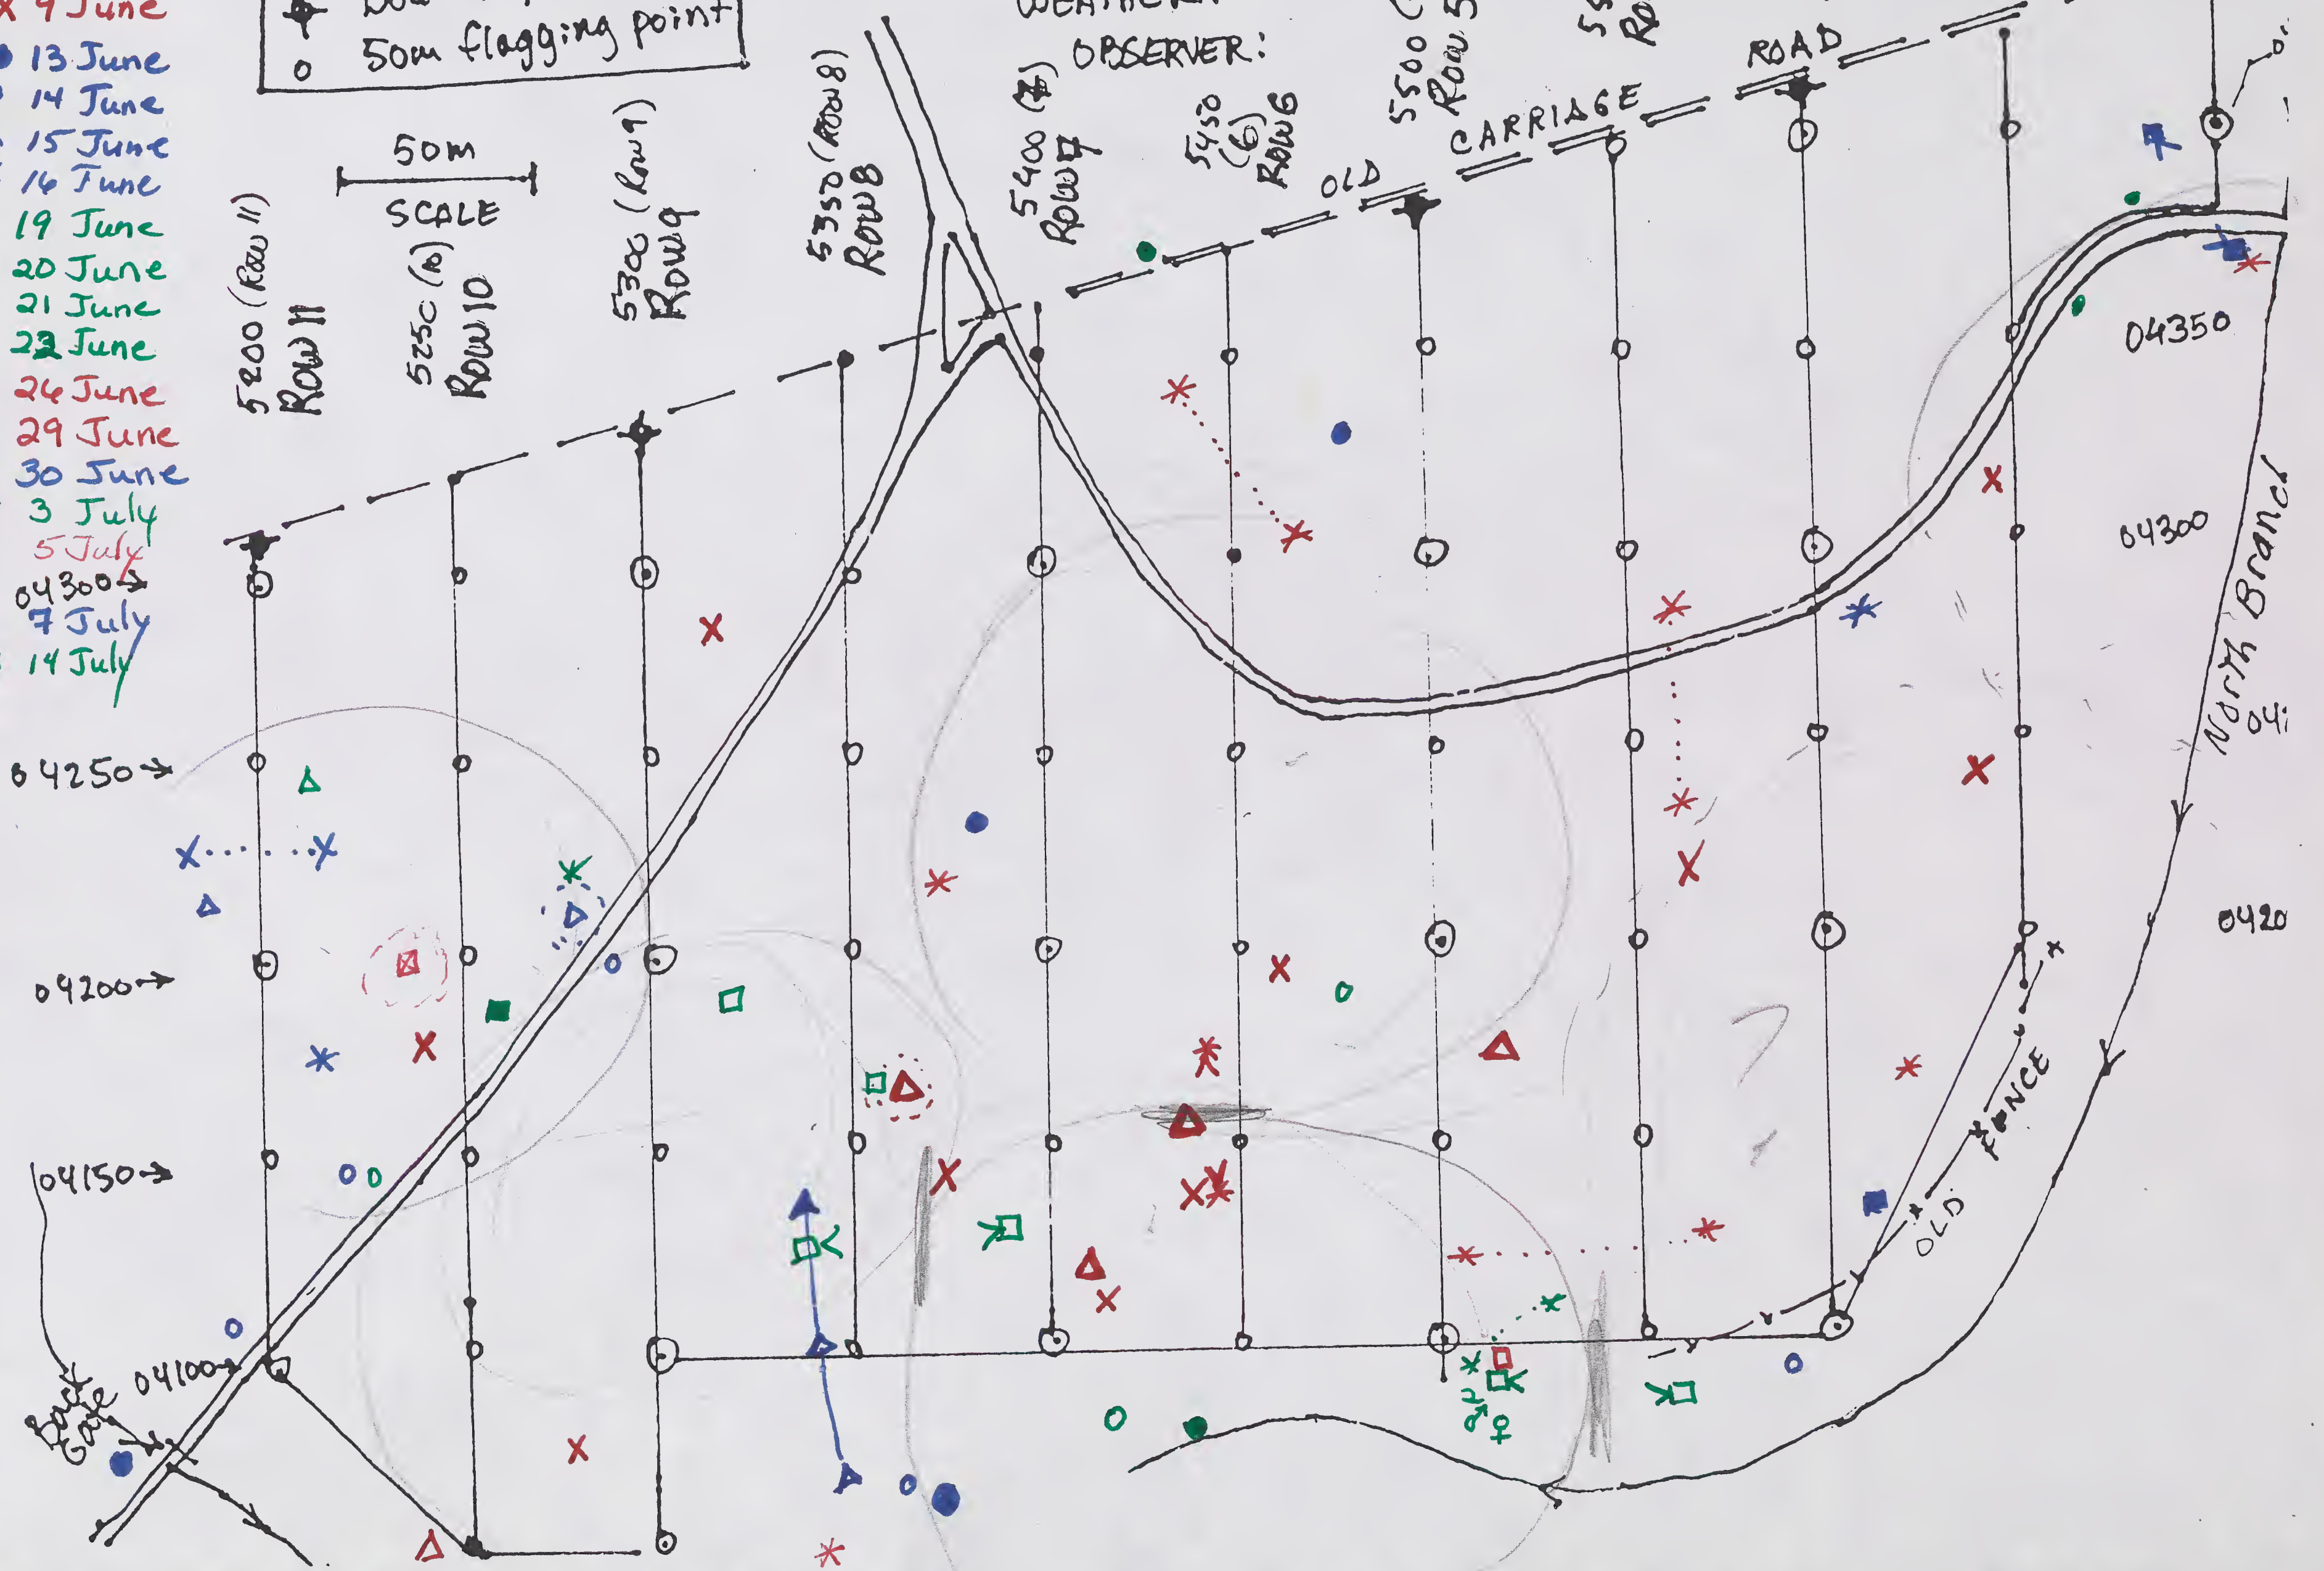 x 9 June
13 June
14 June
15 June
16 June
19 June
20 June
21 June
22 June
26 June
29 June
30 June
3 July
5 July
04300→
7 July
14 July
04250→
04200→
04150→
04100→
Back
Gate
50m flagging point
50m
SCALE
OBSERVER:
5200 (Row 11)
Row 11
5250 (10)
Row 10
5300 (Row 9)
Row 9
5350 (Row 8)
Row 8
5400 (7)
Row 7
5450
(6)
Row 6
5500
Row 5
OLD CARRIAGE ROAD
04350
04300
North Branch
0420
OLD FENCE